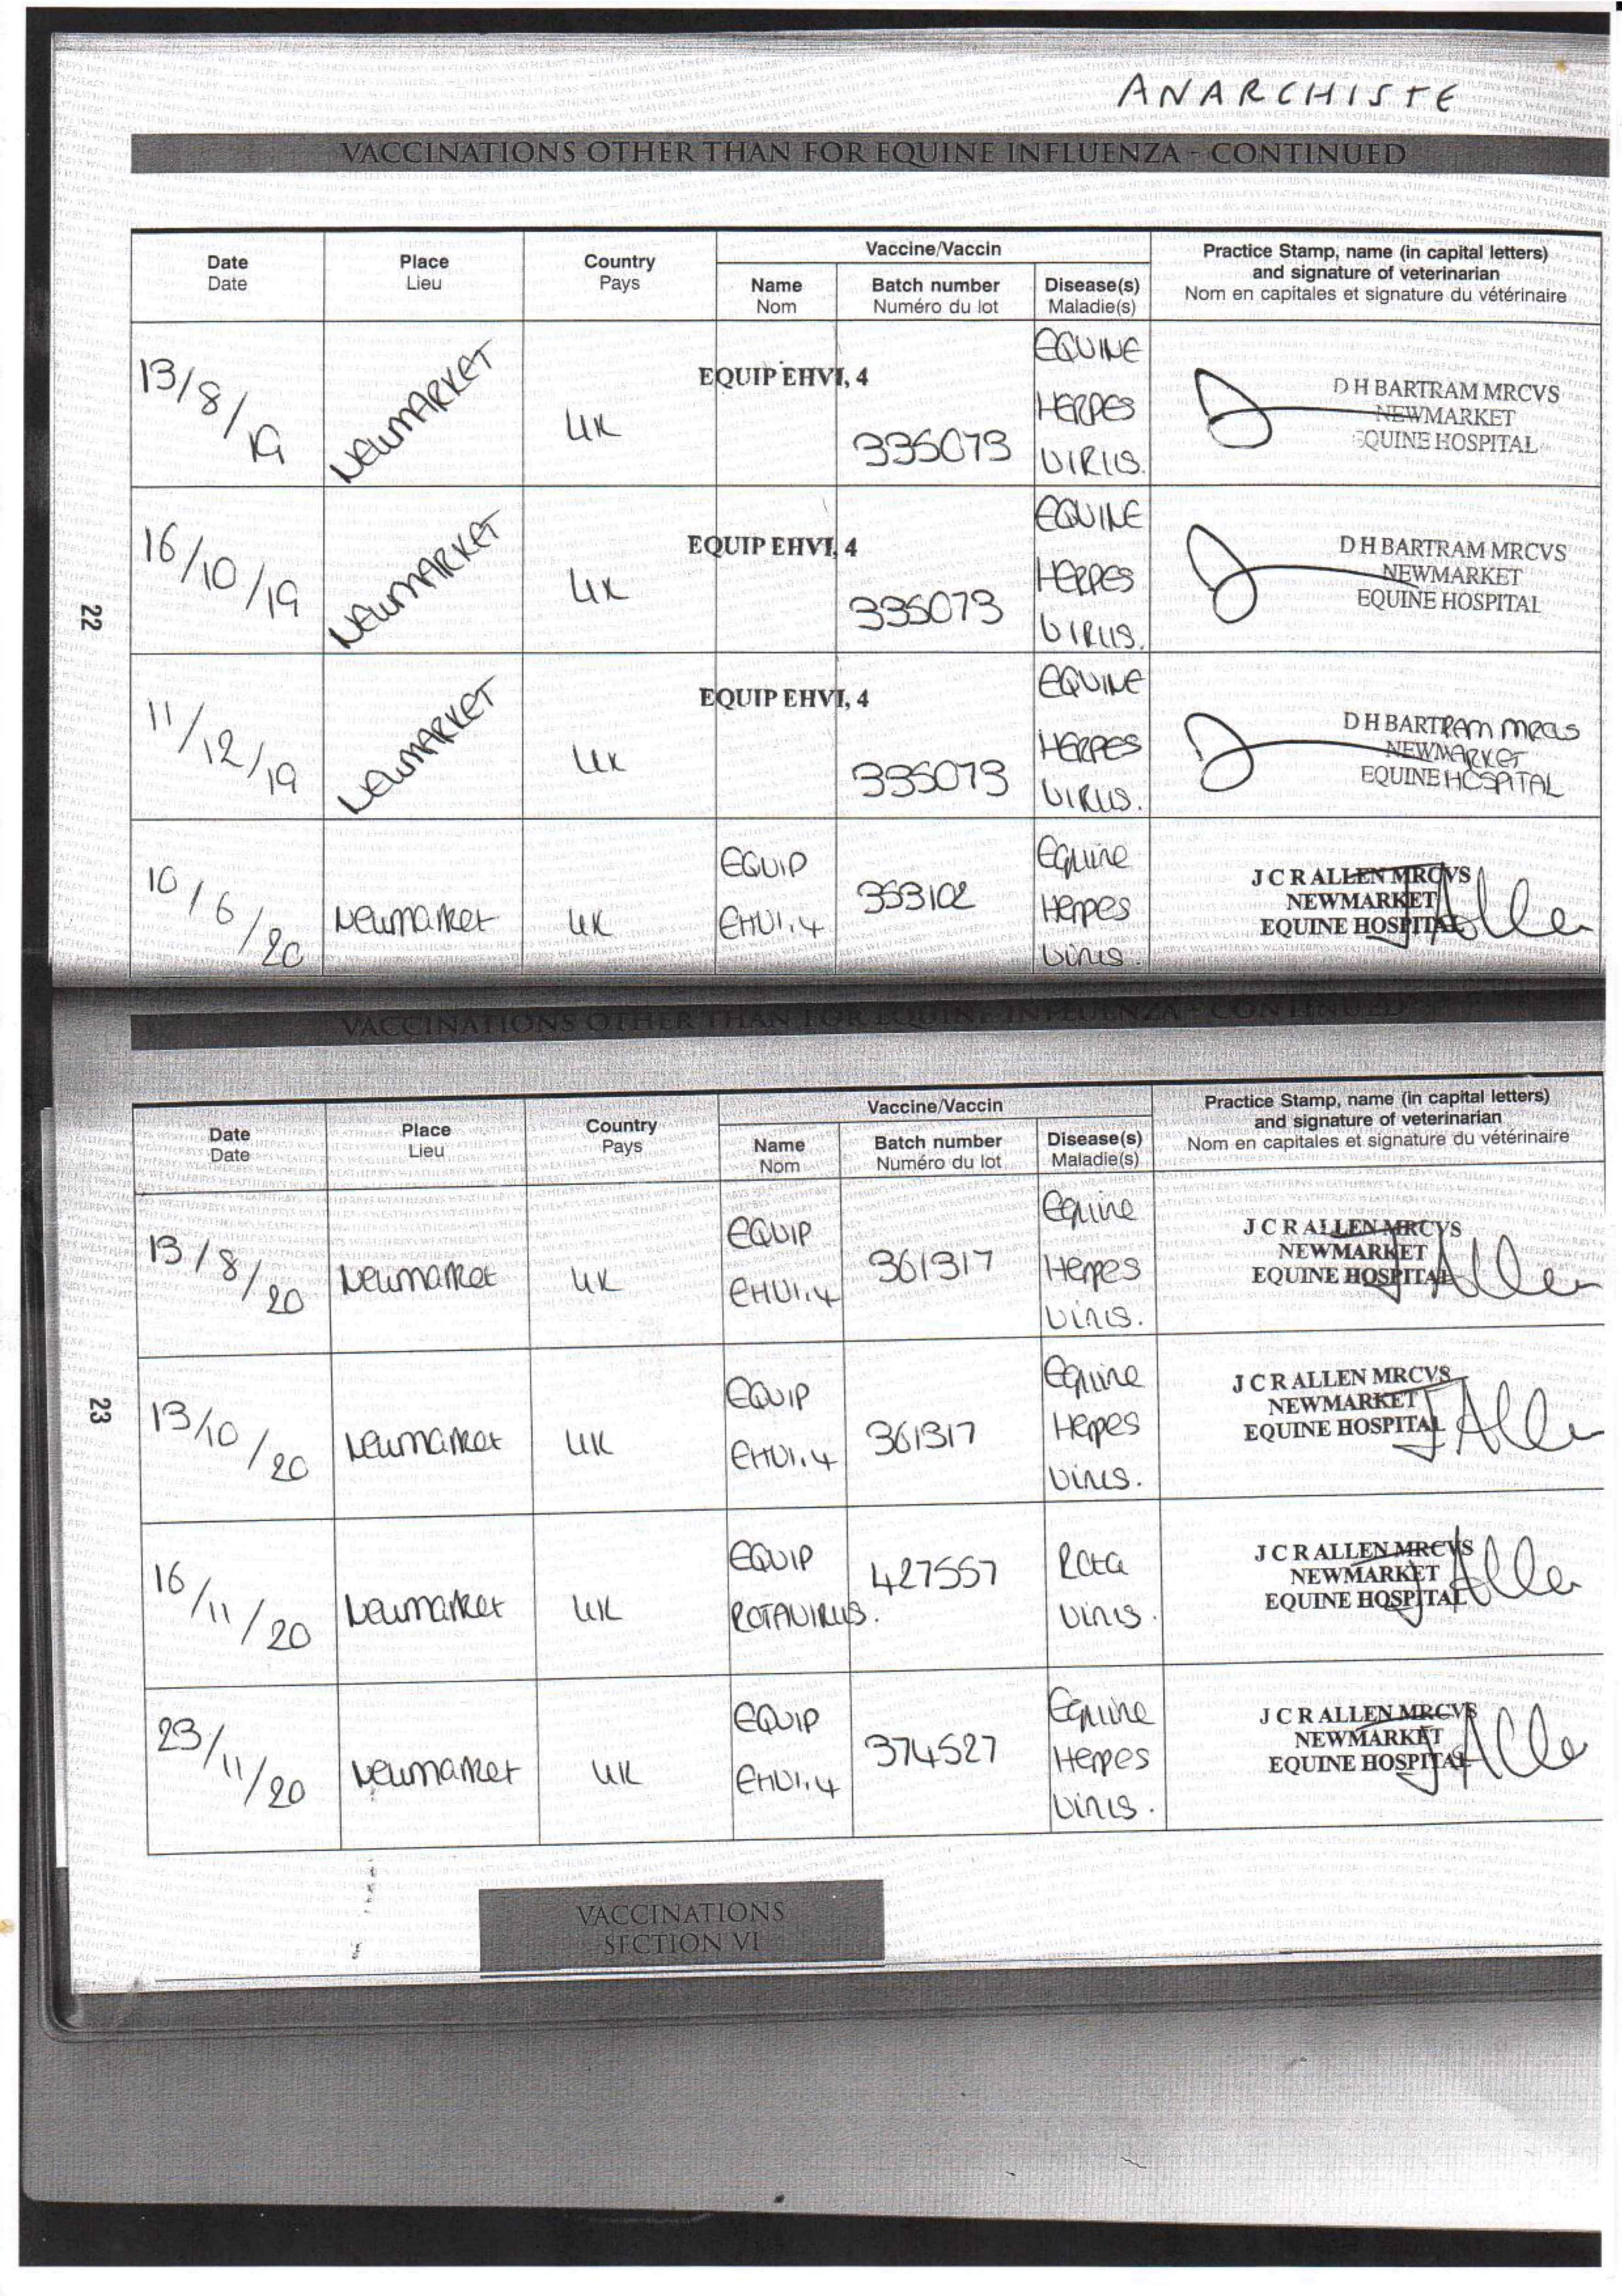 ANARCHISTE
VACCINATIONS OTHER THAN FOR EQUINE INFLUENZA - CONTINUED
Date Place Country Vaccine/Vaccin Practice Stamp, name (in capital letters)
Date Lieu Pays and signature of veterinarian
Name Batch number Disease(s) Nom en capitales et signature du vétérinaire
Nom Numéro du lot Maladie(s)
13/8/19 NEWMARKET UK EQUIP EHV1, 4 335073 EQUINE HERPES VIRUS. D H BARTRAM MRCVS
NEWMARKET
EQUINE HOSPITAL
16/10/19 NEWMARKET UK EQUIP EHV1, 4 335073 EQUINE HERPES VIRUS. D H BARTRAM MRCVS
NEWMARKET
EQUINE HOSPITAL
22
11/12/19 NEWMARKET UK EQUIP EHV1, 4 335073 EQUINE HERPES VIRUS. D H BARTRAM MRCVS
NEWMARKET
EQUINE HOSPITAL
10/6/20 Newmarket UK EQUIP EHV1,4 353102 Equine Herpes Virus. J C R ALLEN MRCVS
NEWMARKET
EQUINE HOSPITAL
JAllen
VACCINATIONS OTHER THAN FOR EQUINE INFLUENZA - CONTINUED
Date Place Country Vaccine/Vaccin Practice Stamp, name (in capital letters)
Date Lieu Pays and signature of veterinarian
Name Batch number Disease(s) Nom en capitales et signature du vétérinaire
Nom Numéro du lot Maladie(s)
13/8/20 Newmarket UK EQUIP EHV1,4 361317 Equine Herpes Virus. J C R ALLEN MRCVS
NEWMARKET
EQUINE HOSPITAL
JAllen
23
13/10/20 Newmarket UK EQUIP EHV1,4 361317 Equine Herpes Virus. J C R ALLEN MRCVS
NEWMARKET
EQUINE HOSPITAL
JAllen
16/11/20 Newmarket UK EQUIP ROTAVIRUS. 427557 Rota Virus. J C R ALLEN MRCVS
NEWMARKET
EQUINE HOSPITAL
JAllen
23/11/20 Newmarket UK EQUIP EHV1,4 374527 Equine Herpes Virus. J C R ALLEN MRCVS
NEWMARKET
EQUINE HOSPITAL
JAllen
VACCINATIONS
SECTION VI